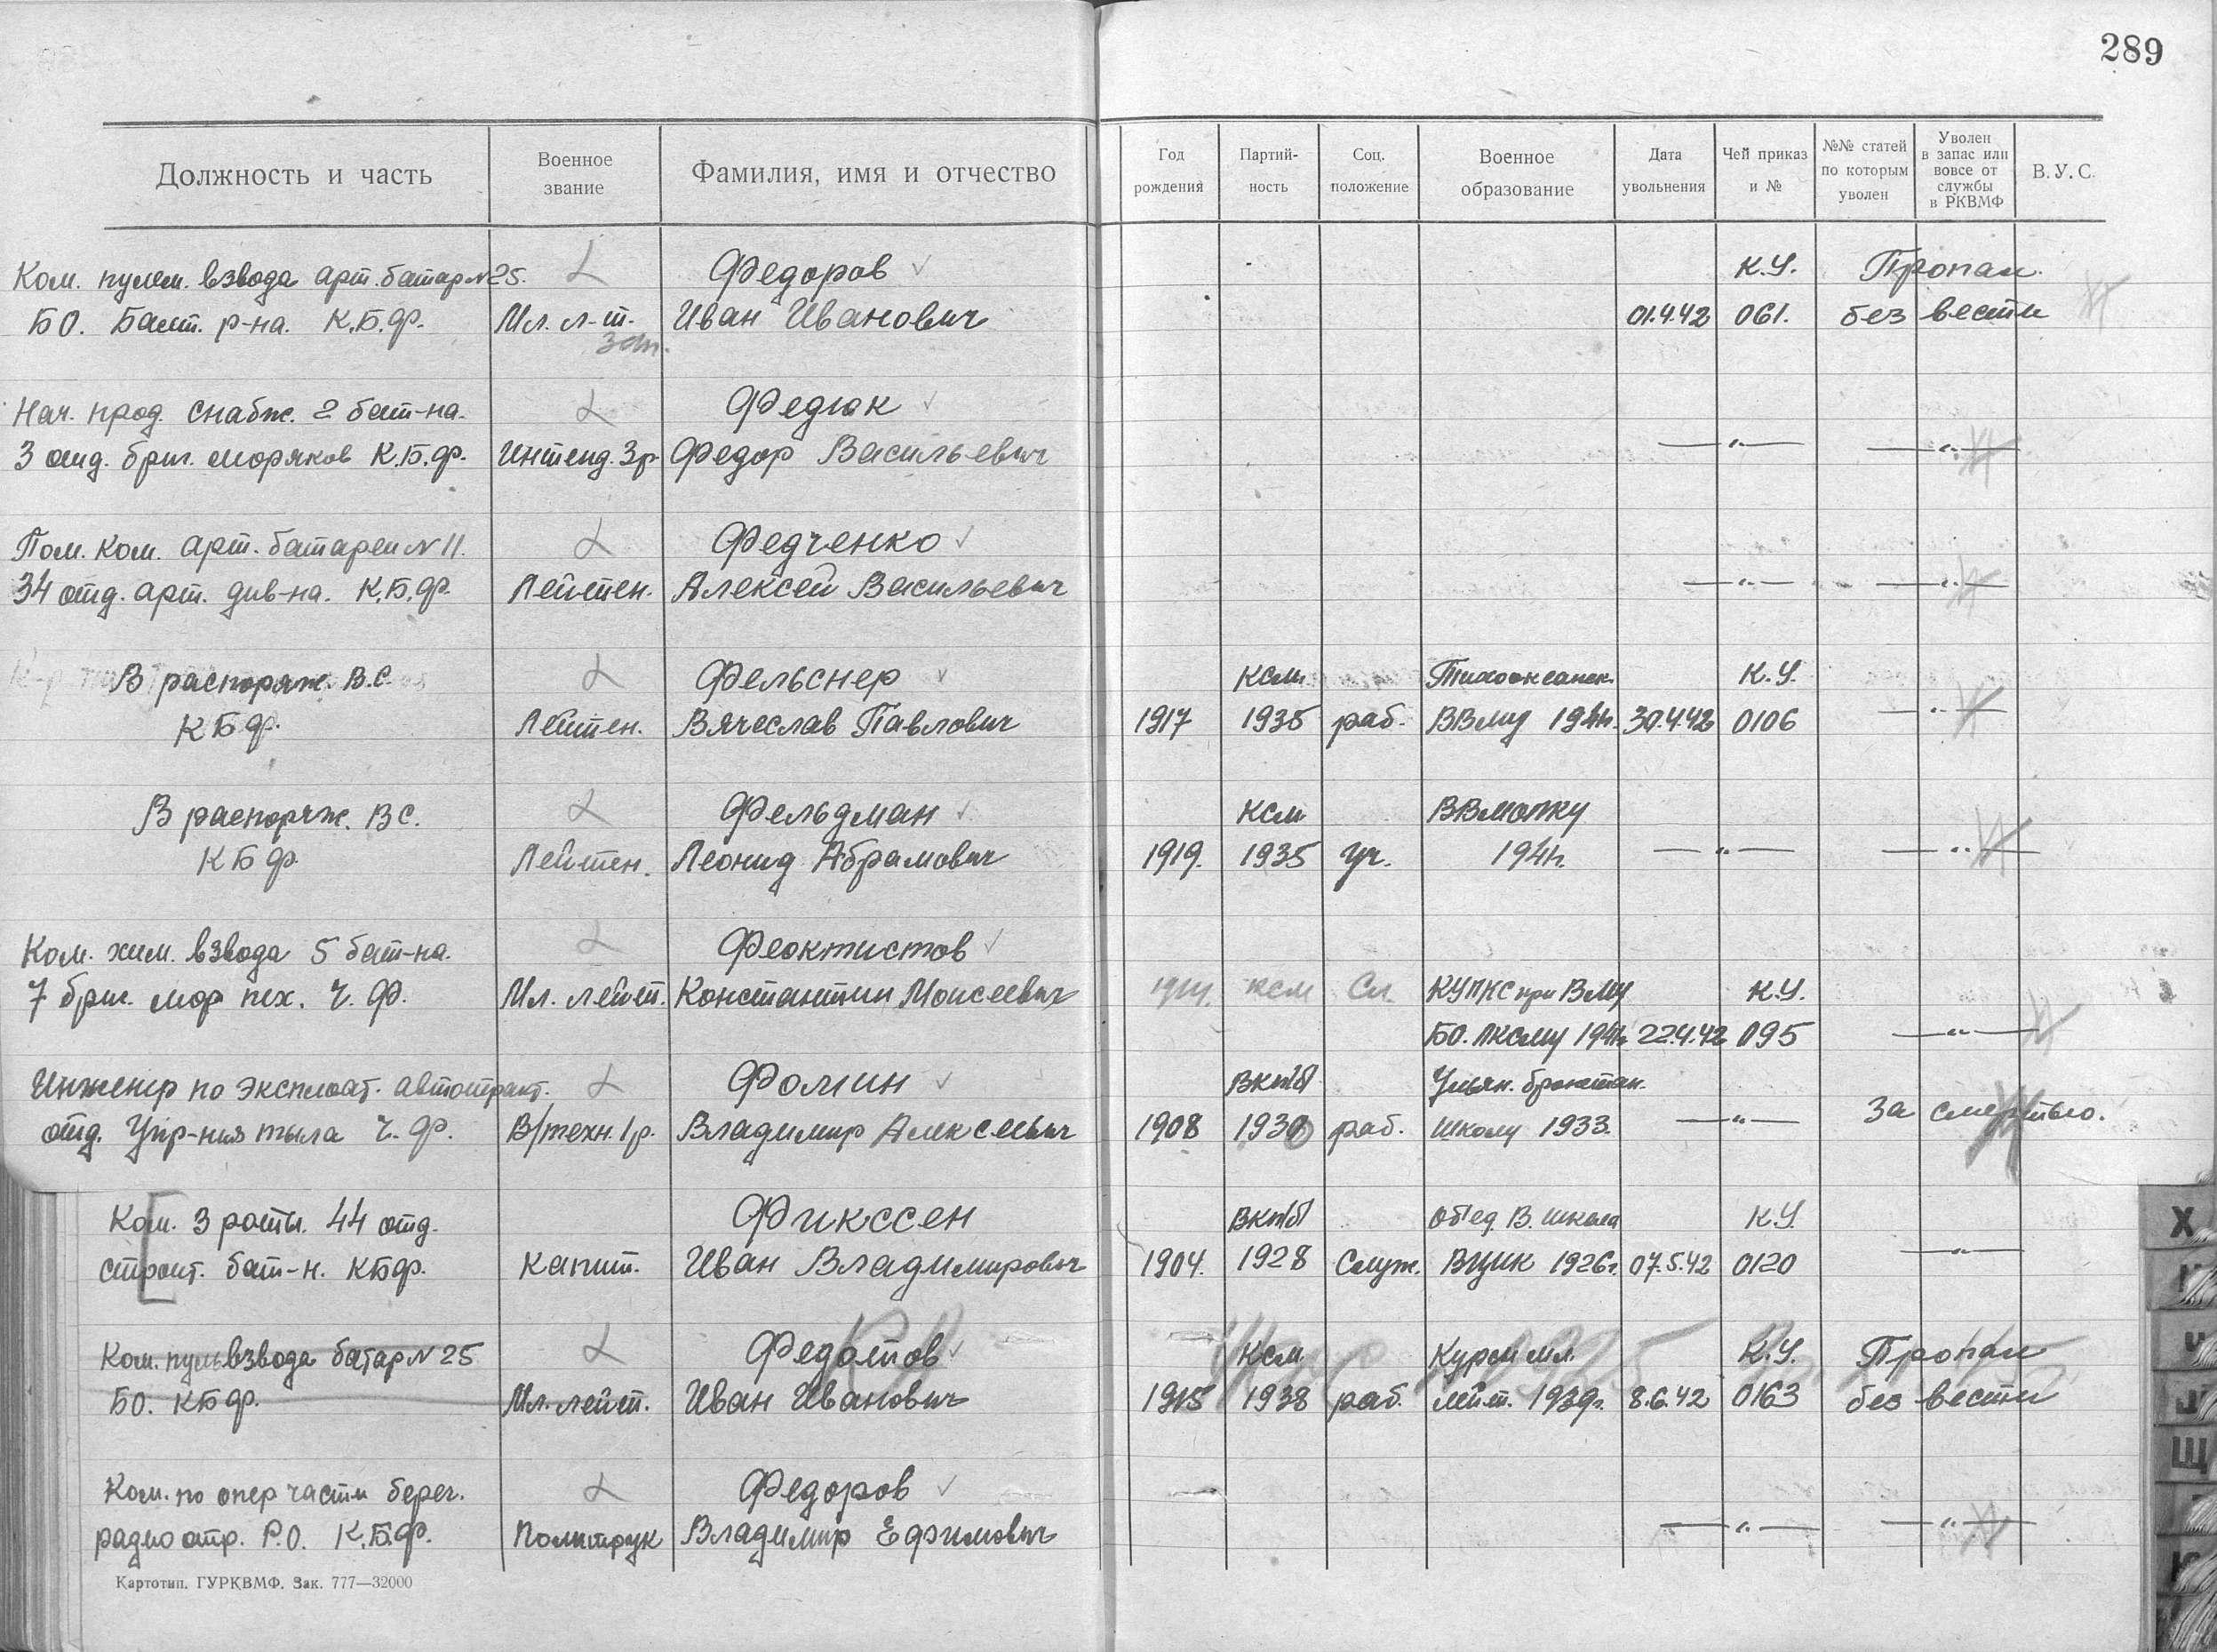 289
Должность и часть
Военное звание
Фамилия, имя и отчество
Год рождения
Партий-ность
Соц. положение
Военное образование
Дата увольнения
Чей приказ и №
№№ статей по которым уволен
Уволен в запас или вовсе от службы в РКВМФ
В.У.С.
Ком. пулем. взвода арт. батар N 25. Федоров К.У. Пропал
Б О. Балт. р-на. К.Б.Ф. Мл. л-т. Иван Иванович 01.4.42 061. без вести
Нач. прод. снабж. 2 бат-на. Федюк
3 отд. бриг. моряков К.Б.Ф. Интенд. 3 р. Федор Васильевич —"— —"—
Пом. Ком. арт. батареи N 11. Федченко
34 отд. арт. див-на. К.Б.Ф. Лейтен. Алексей Васильевич —"— —"—
В распоряж. В.С. Фельснер ксм Тихоокеанск. К.У.
КБФ. Лейтен. Вячеслав Павлович 1917 1935 раб. ВВМУ 1941г. 30.4.42 0106 —"—
В распоряж. ВС. Фельдман ксм
КБФ Лейтен. Леонид Абрамович 1919. 1935 уч. 1941г. —"— —"—
Ком. хим. взвода 5 бат-на. Феоктистов
7 бриг. мор пех. Ч.Ф. Мл. лейт. Константин Моисеевич ксм Сл. при ВМУ К.У.
БО. 22.4.42 095 —"—
Инженер по эксплоат. автотракт. Фомин ВКП/б/ Ульян. бронетан.
отд. Упр-ния тыла Ч.Ф. В/техн. 1 р. Владимир Алексеевич 1908 1930 раб. школу 1933. —"— за смертью.
Ком. 3 роты. 44 отд. Фикссен ВКП/б/ Об'ед. В. школа К.У.
строит. бат-н. КБФ. Капит. Иван Владимирович 1904. 1928 Служ. ВЦИК 1926г. 07.5.42 0120 —"—
Ком. пульвзвода батар N 25 Федотов Ксм. Курсы мл. К.У. Пропал
БО. КБФ. Мл. лейт. Иван Иванович 1915 1938 раб. лейт. 1939г. 8.6.42 0163 без вести
Ком. по опер части берег. Федоров
радио отр. Р.О. К.Б.Ф. Политрук Владимир Ефимович —"— —"—
Картотип. ГУРКВМФ. Зак. 777—32000
Х
Щ